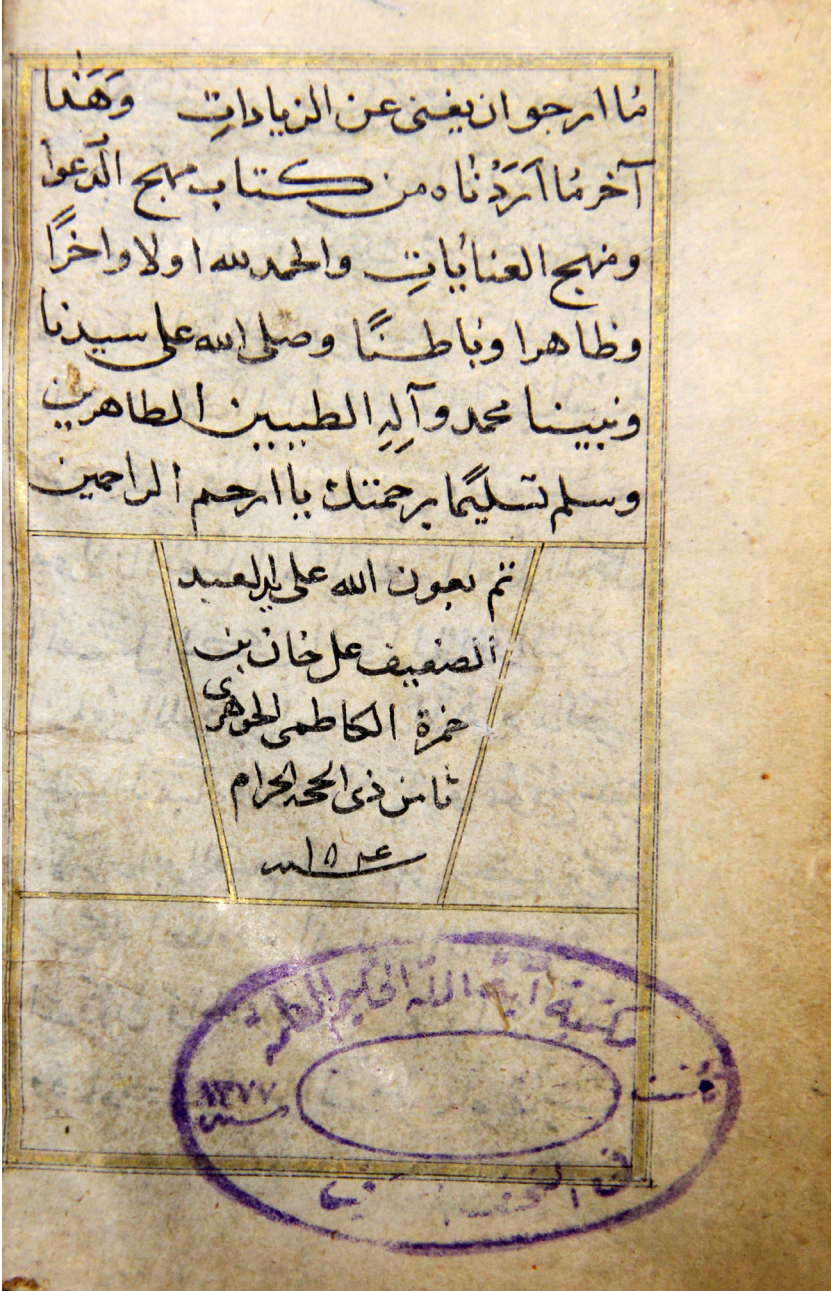 ما ارجو ان يغنى عن الزياداتِ وَهَذا
آخر ما اَرَدْناه من كتاب مهج الدَّعوا
ومنهج العناياتِ والحمد لله اولا واخرًا
وظاهرا وباطنًا وصلى الله على سيدنا
ونبينا محمد وآلِهِ الطيبين الطاهرين
وسلم تسليمًا برحمتك يا ارحم الراحمين
تم بعون الله على يد العبد
الضعيف على خان بن
حمزة الكاظمى الجوهرى
ثامن ذى الحجة الحرام
مكتبة آية الله الحكيم العامة
سنة ١٣٧٧
فى النجف